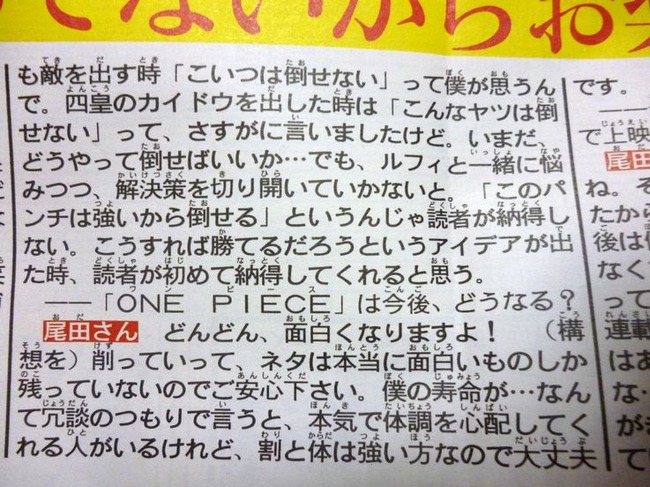 ないからお
も敵を出す時「こいつは倒せない」って僕が思うん
で。四皇のカイドウを出した時は「こんなヤツは倒
せない」って、さすがに言いましたけど。いまだ、
どうやって倒せばいいか…でも、ルフィと一緒に悩
みつつ、解決策を切り開いていかないと。「このパ
ンチは強いから倒せる」というんじゃ読者が納得し
ない。こうすれば勝てるだろうというアイデアが出
た時、読者が初めて納得してくれると思う。
――「ONE PIECE」は今後、どうなる?
尾田さん どんどん、面白くなりますよ! (構
想を)削っていって、ネタは本当に面白いものしか
残っていないのでご安心下さい。僕の寿命が…なん
て冗談のつもりで言うと、本気で体調を心配してく
れる人がいるけれど、割と体は強い方なので大丈夫
です。
で上映
尾田
ね。そ
たから
後は
なく
って
連載
はあ
な…